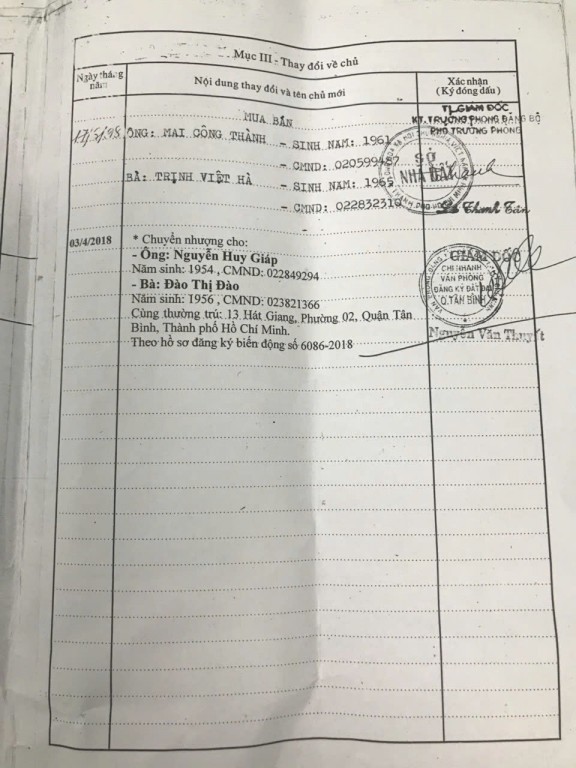 Mục III - Thay đổi về chủ
Ngày tháng năm
Nội dung thay đổi và tên chủ mới
Xác nhận
(Ký đóng dấu)
MUA BÁN
TL.GIÁM ĐỐC
KT.TRƯỞNG PHÒNG ĐĂNG BỘ
PHÓ TRƯỞNG PHÒNG
ÔNG: MAI CÔNG THÀNH - SINH NĂM: 1961
- CMND: 020599
BÀ: TRỊNH VIỆT HÀ - SINH NĂM: 1965
- CMND: 022832310
SỞ
NHÀ ĐẤT
03/4/2018
* Chuyển nhượng cho:
- Ông: Nguyễn Huy Giáp
Năm sinh: 1954 , CMND: 022849294
- Bà: Đào Thị Đào
Năm sinh: 1956 , CMND: 023821366
Cùng thường trú: 13 Hát Giang, Phường 02, Quận Tân
Bình, Thành phố Hồ Chí Minh.
Theo hồ sơ đăng ký biến động số 6086-2018
GIÁM ĐỐC
CHI NHÁNH
VĂN PHÒNG
ĐĂNG KÝ ĐẤT ĐAI
Q.TÂN BÌNH
Nguyễn Văn Thuyết